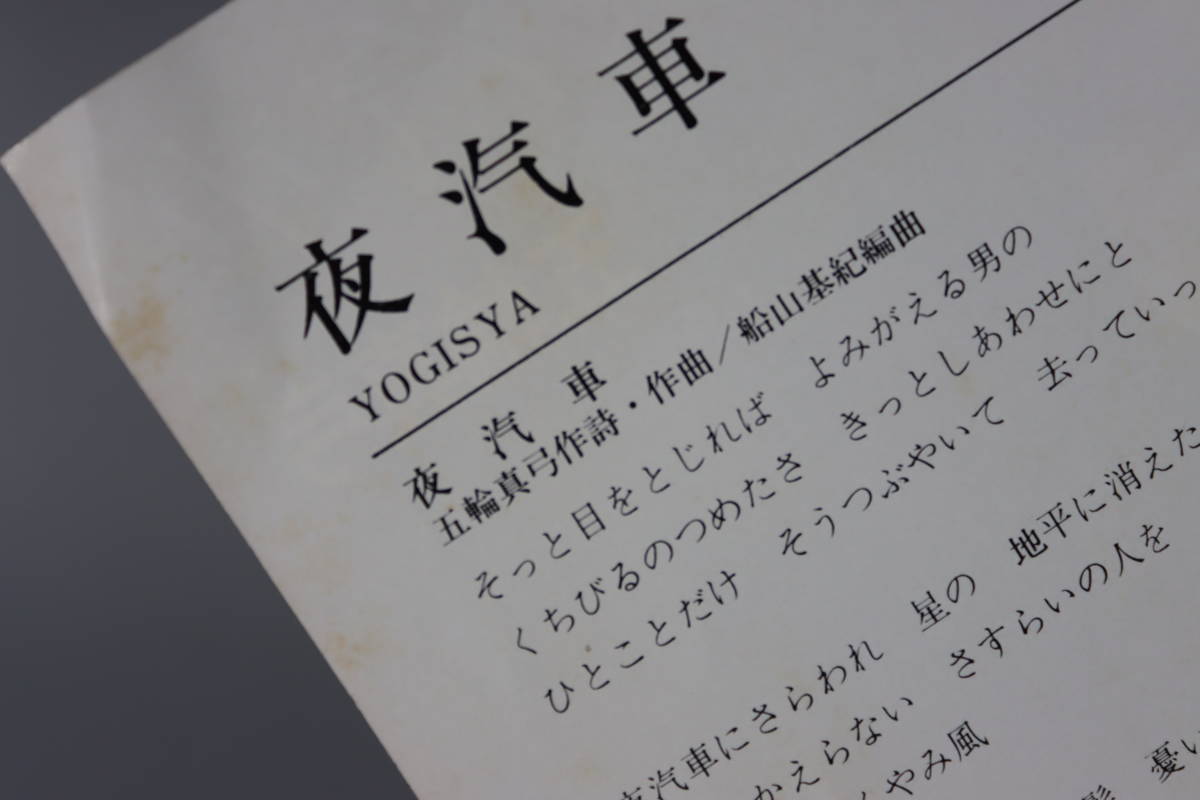 夜汽車
YOGISYA
夜汽車
五輪真弓作詩・作曲／船山基紀編曲
そっと目をとじれば　よみがえる男の
くちびるのつめたさ　きっとしあわせにと
ひとことだけ　そうつぶやいて　去っていっ
夜汽車にさらわれ　星の　地平に消えた
かえらない　さすらいの人を
くやみ風
憂い